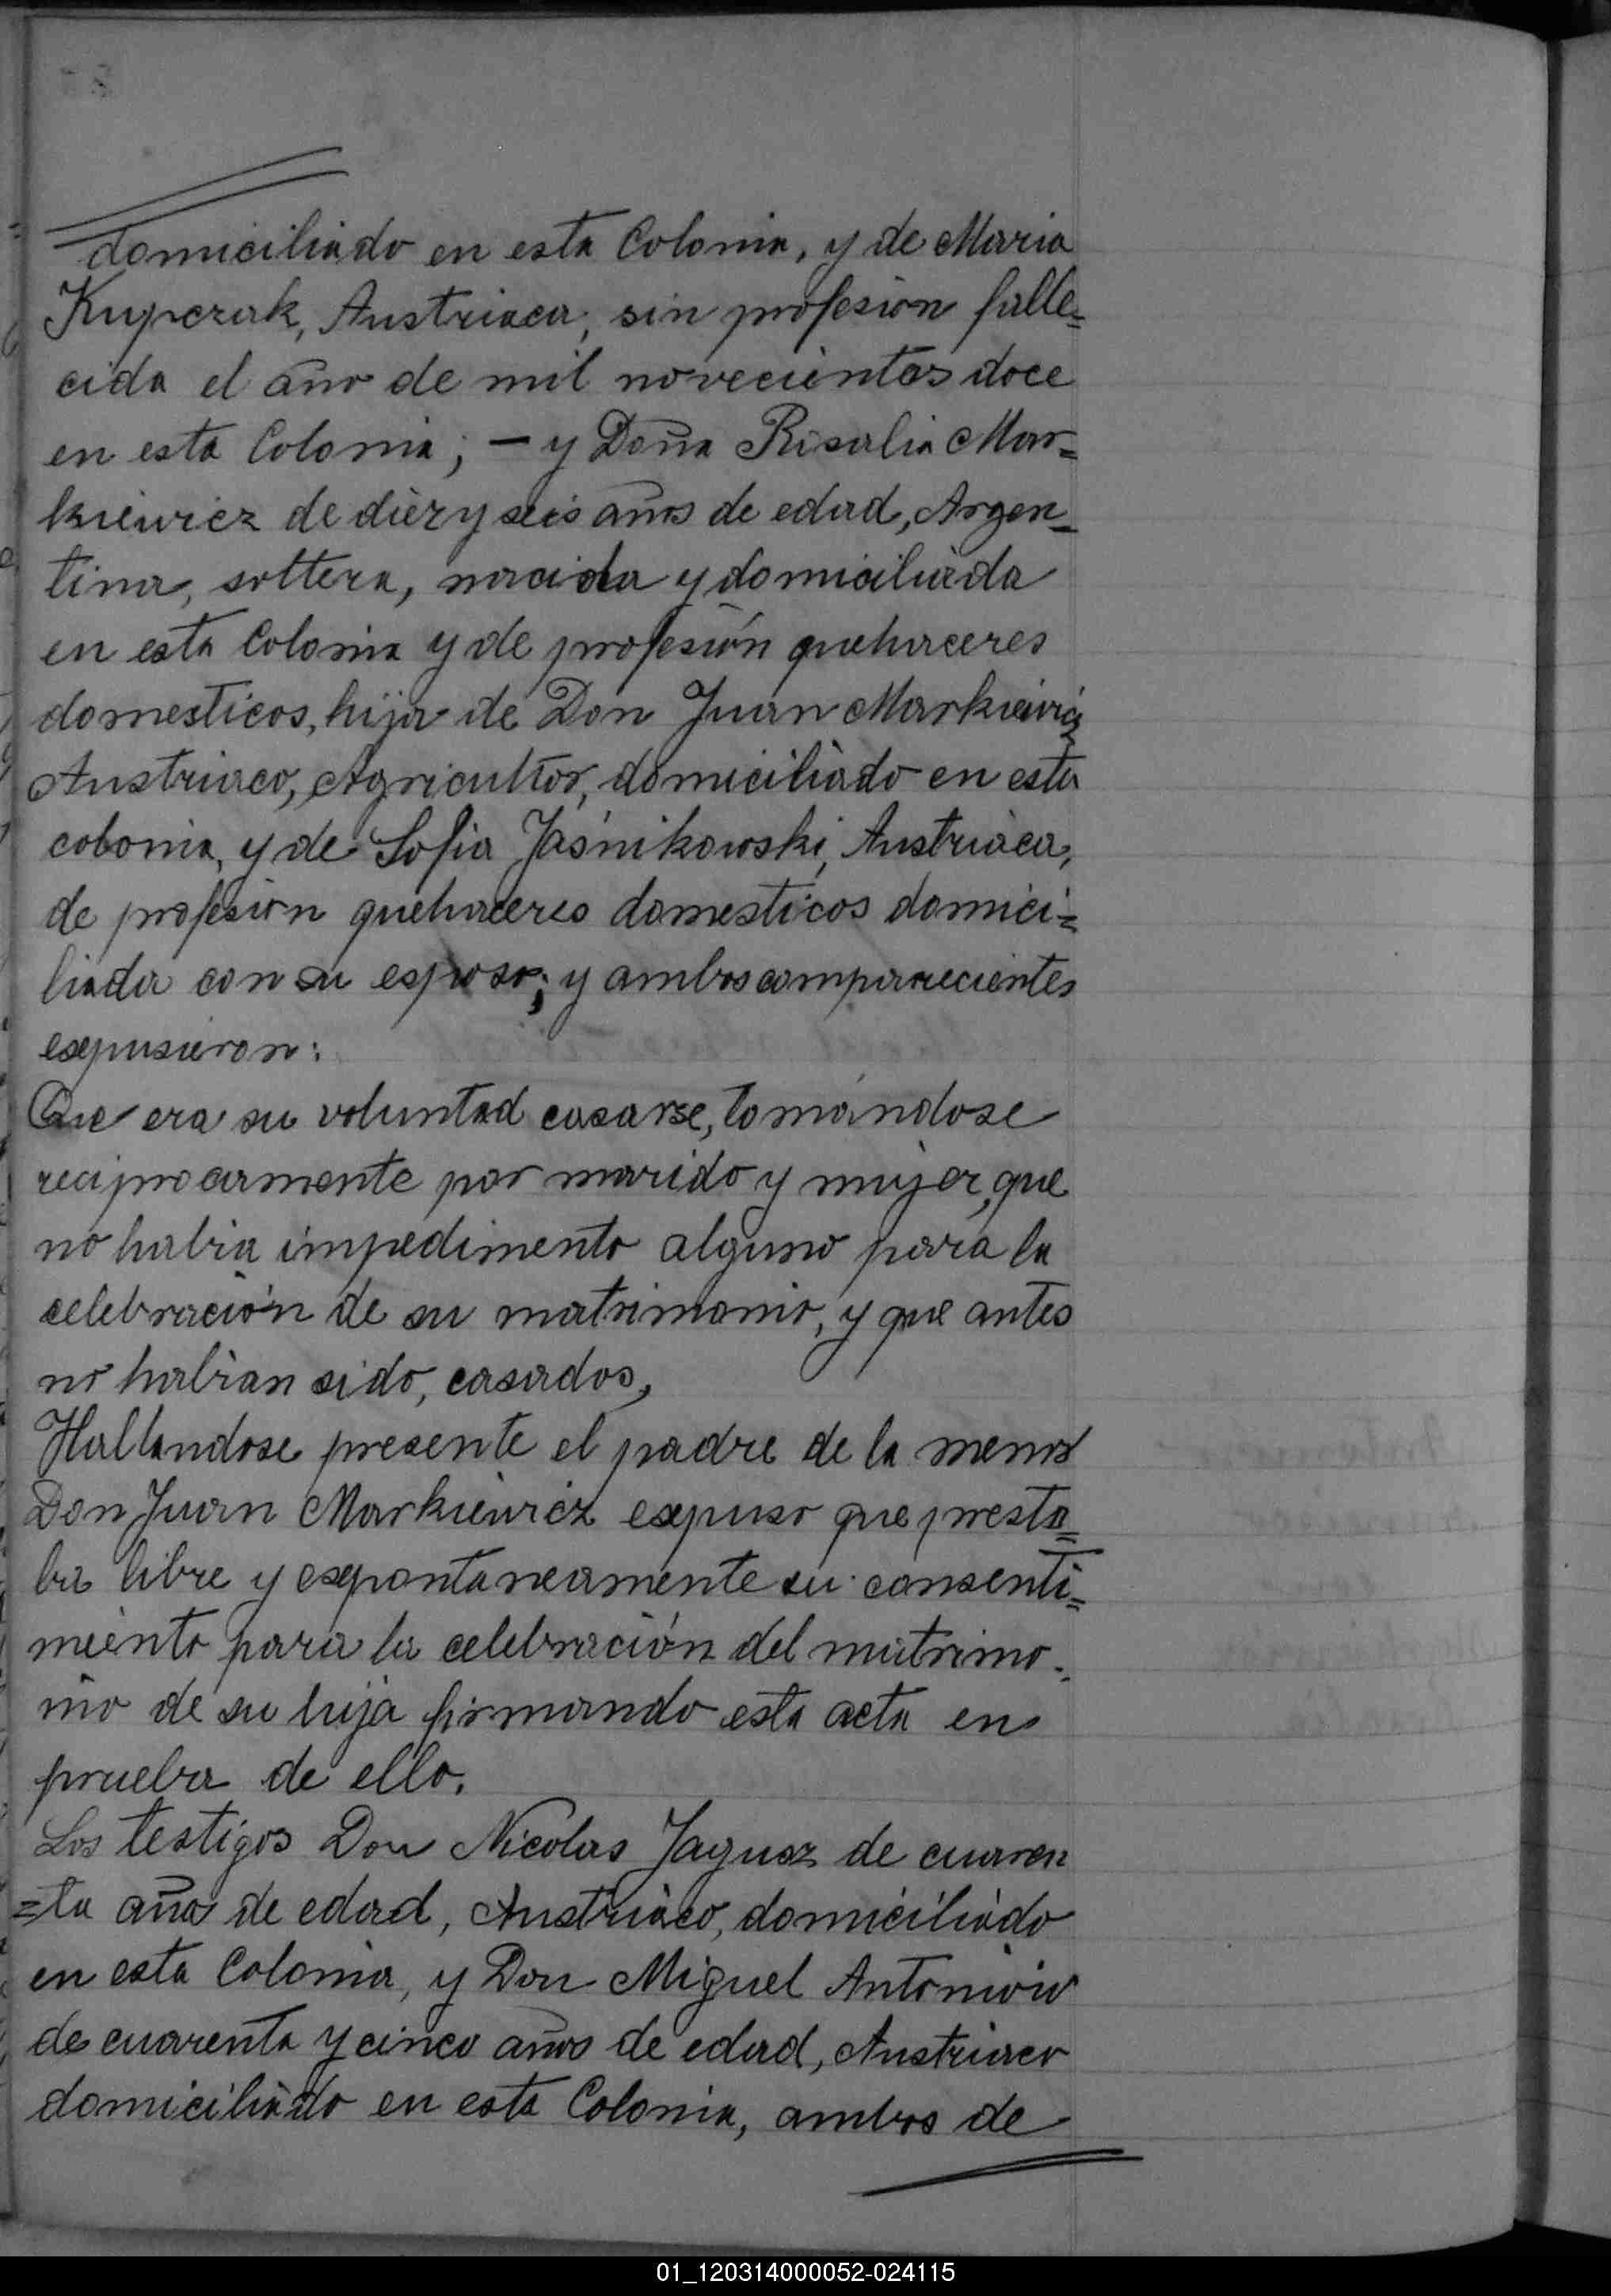 domiciliado en esta Colonia, y de Maria
Kupczak, Austriaca, sin profesion falle=
cida el año de mil novecientos doce
en esta Colonia; — y Doña Risalia Mar=
kiewicz de diez y seis años de edad, Argen=
tina, soltera, nacida y domiciliada
en esta Colonia y de profesión quehaceres
domesticos, hija de Don Juan Markiewicz
Austriaco, Agricultor, domiciliado en esta
colonia, y de Sofia Jaśnikowski, Austriaca,
de profesion quehaceres domesticos domici=
liada con su esposo; y ambos comparecientes
expusieron:
Que era su voluntad casarse, tomándose
reciprocamente por marido y mujer, que
no habia impedimento alguno para la
celebración de su matrimonio, y que antes
no habian sido, casados,
Hallandose presente el padre de la menor
Don Juan Markiewicz expuso que presta=
ba libre y expontaneamente su consenti=
miento para la celebración del matrimo=
nio de su hija firmando esta acta en
prueba de ello.
Los testigos Don Nicolas Jagusz de cuaren
=ta años de edad, Austriaco, domiciliado
en esta Colonia, y Don Miguel Antoniów
de cuarenta y cinco años de edad, Austriaco
domiciliado en esta Colonia, ambos de
01_120314000052-024115